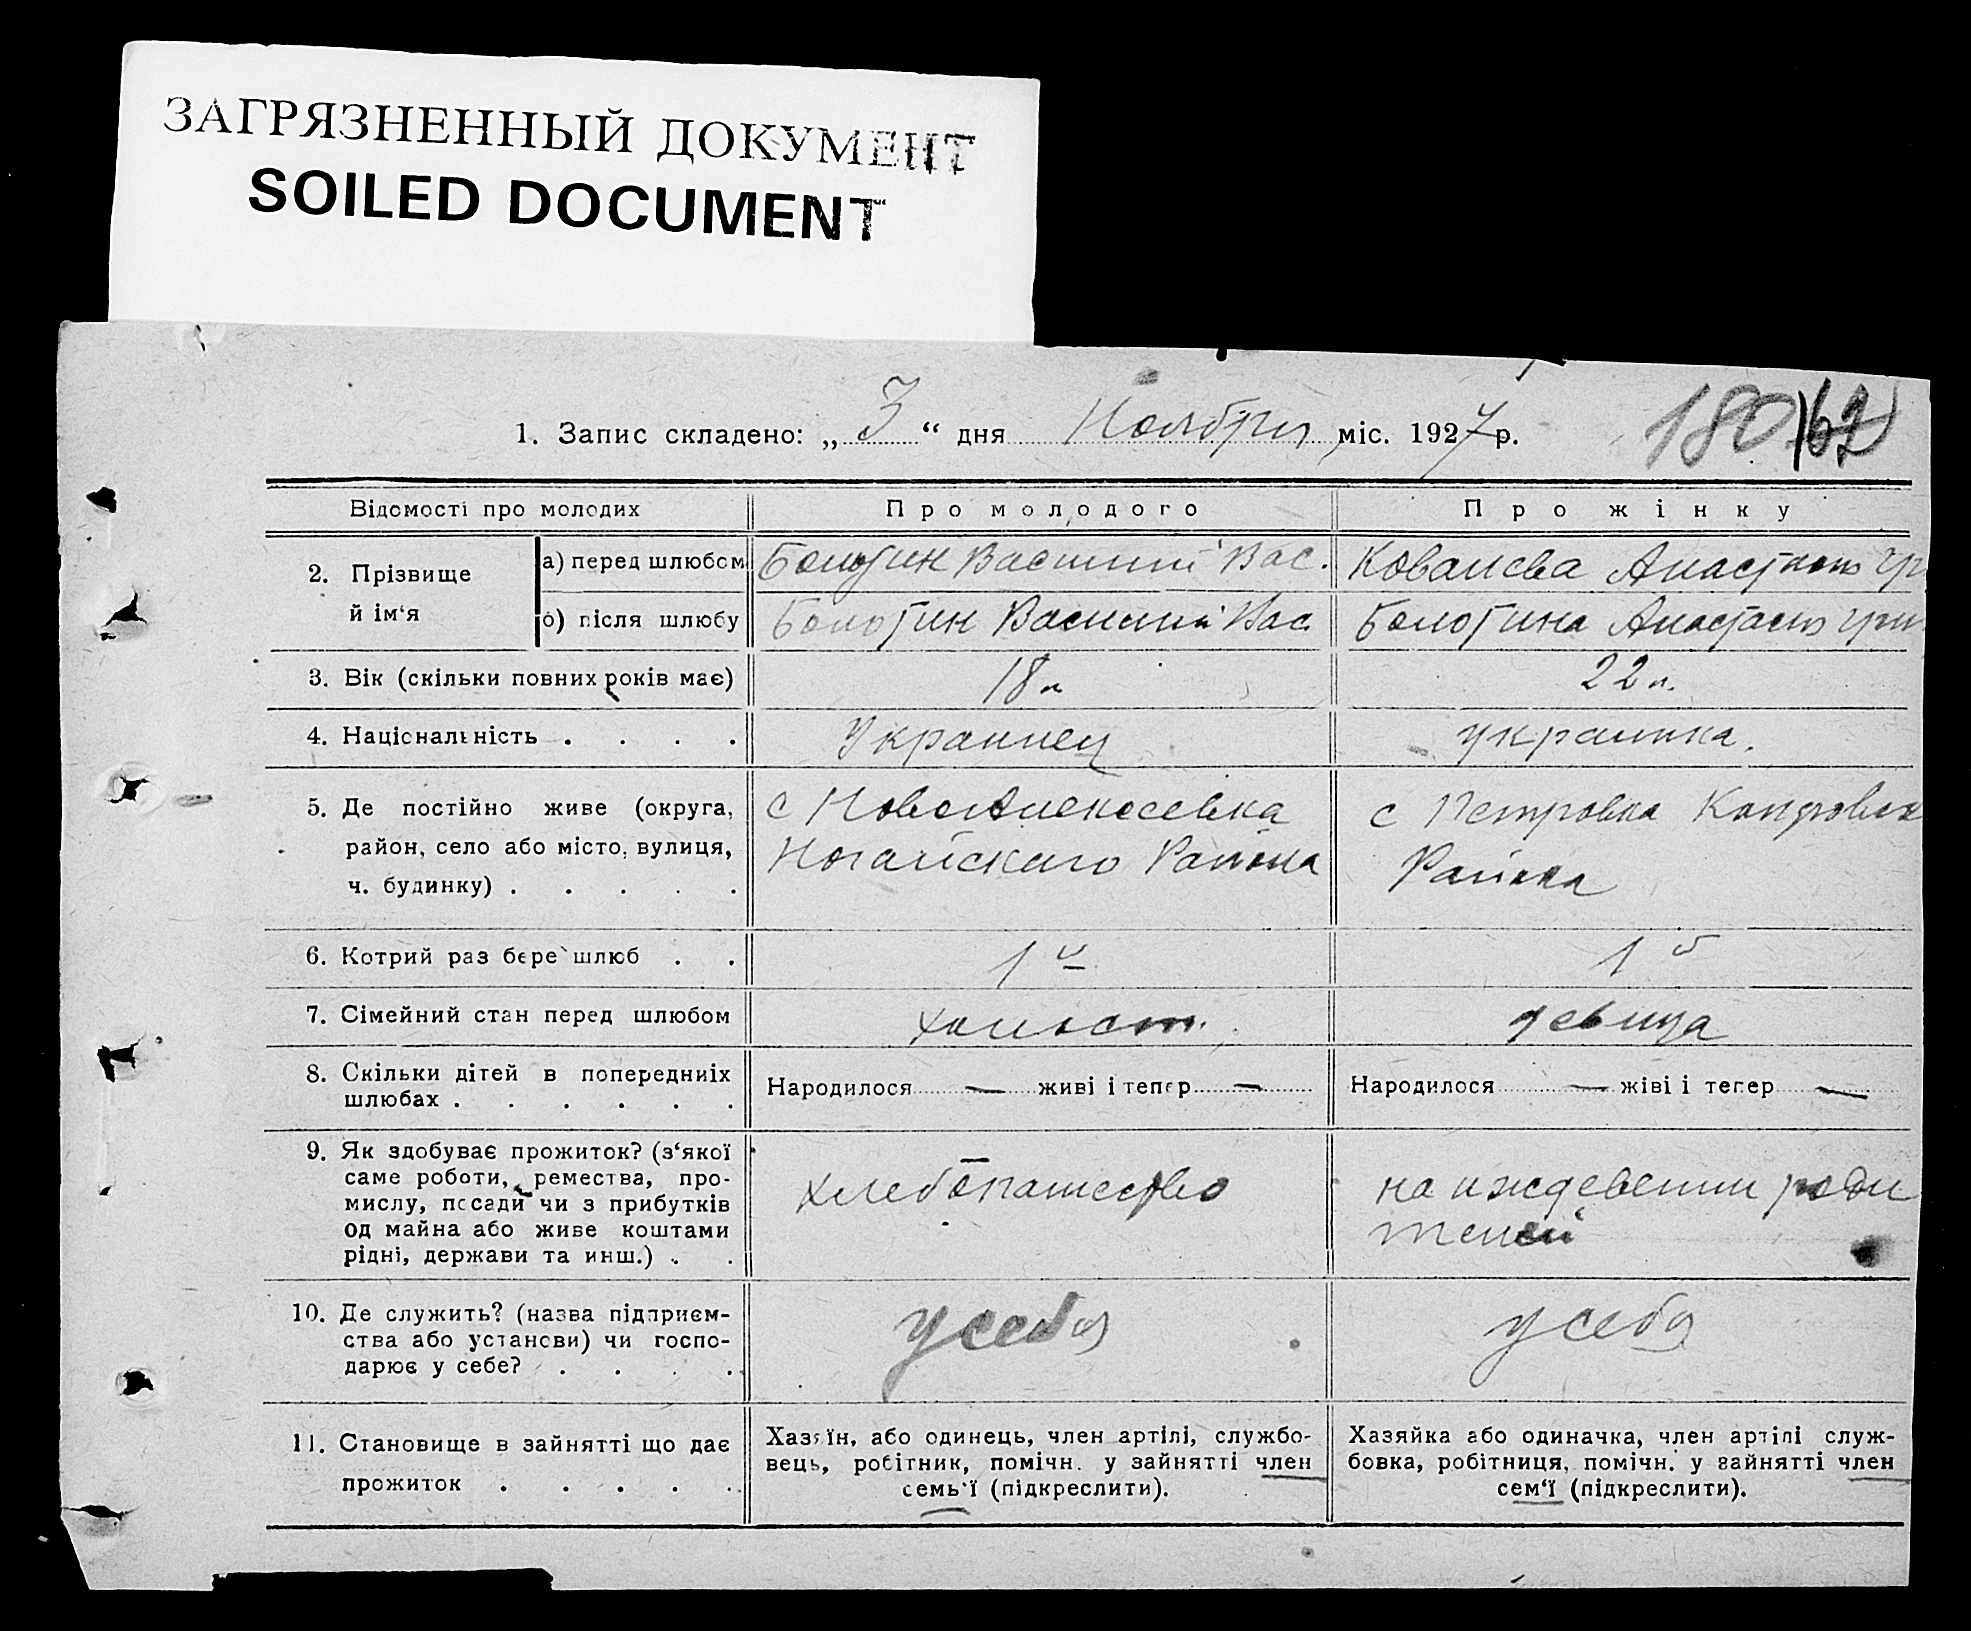 ЗАГРЯЗНЕННЫЙ ДОКУМЕНТ
SOILED DOCUMENT
1. Запис складено: „ 3 “ дня Ноября міс. 1927 р.
180 162
Відомості про молодих
Про молодого
Про жінку
2. Прізвище й ім‘я
а) перед шлюбом
Болотин Василий Вас.
Ковалева Анастасия Гр
б) після шлюбу
Болотин Василий Вас
Болотина Анастасия Гри
3. Вік (скільки повних років має)
18 л
22 л.
4. Національність . . . .
Украинец
Украинка.
5. Де постійно живе (округа,
район, село або місто, вулиця,
ч. будинку) . . . . .
с НовоАлексеевка
Ногайскаго Района
с Петровка
Района
6. Котрий раз бере шлюб . .
1й
1й
7. Сімейний стан перед шлюбом
холост.
девица
8. Скільки дітей в попередниіх
шлюбах . . . . . .
Народилося — живі і тепер —
Народилося — жіві і тепер —
9. Як здобуває прожиток? (з‘якої
саме роботи, ремества, про-
мислу, посади чи з прибутків
од майна або живе коштами
рідні, держави та инш.) . .
хлебопашество
на иждевении роди
телей
10. Де служить? (назва підприєм-
ства або установи) чи госпо-
дарює у себе? . . . .
у себя
у себя
11. Становище в зайнятті що дає
прожиток . . . . .
Хазяїн, або одинець, член артілі, службо-
вець, робітник, помічн. у зайнятті член
семь‘ї (підкреслити).
Хазяйка або одиначка, член артілі служ-
бовка, робітниця, помічн. у зайнятті член
сем‘ї (підкреслити).